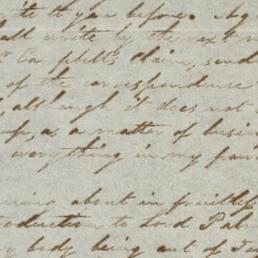 write to you before. My
shall write by the next m
Campbell's claim, send
of the correspondence
, although it does not
, as a matter of busin
everything in my pow
about in fruitless
troduction to Lord Palm
body being out of Tow